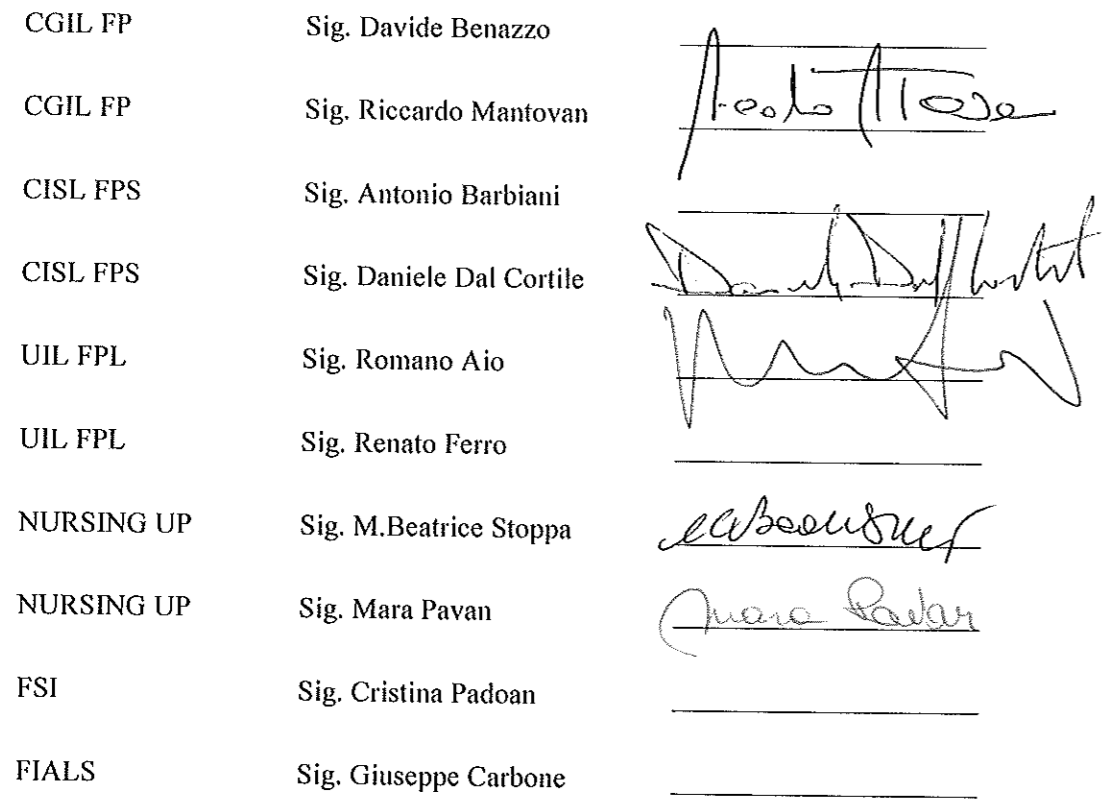 CGIL FP Sig. Davide Benazzo
CGIL FP Sig. Riccardo Mantovan
CISL FPS Sig. Antonio Barbiani
CISL FPS Sig. Daniele Dal Cortile
UIL FPL Sig. Romano Aio
UIL FPL Sig. Renato Ferro
NURSING UP Sig. M.Beatrice Stoppa
NURSING UP Sig. Mara Pavan Mara Pavan
FSI Sig. Cristina Padoan
FIALS Sig. Giuseppe Carbone